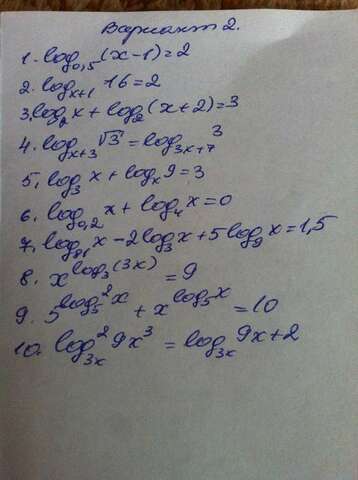 Вариант 2.
1. log₀,₅(x-1)=2
2. logₓ₊₁ 16=2
3. log₂x+log₂(x+2)=3
4. logₓ₊₃ √3=log₃ₓ₊₇ 3
5. log₃x+logₓ9=3
6. log₀,₂x+log₄x=0
7. log₈₁x-2log₃x+5log₉x=1,5
8. x^log₃(3x)=9
9. 5^log₅²x + x^log₅x=10
10. log²₃ₓ 9x³=log₃ₓ 9x+2